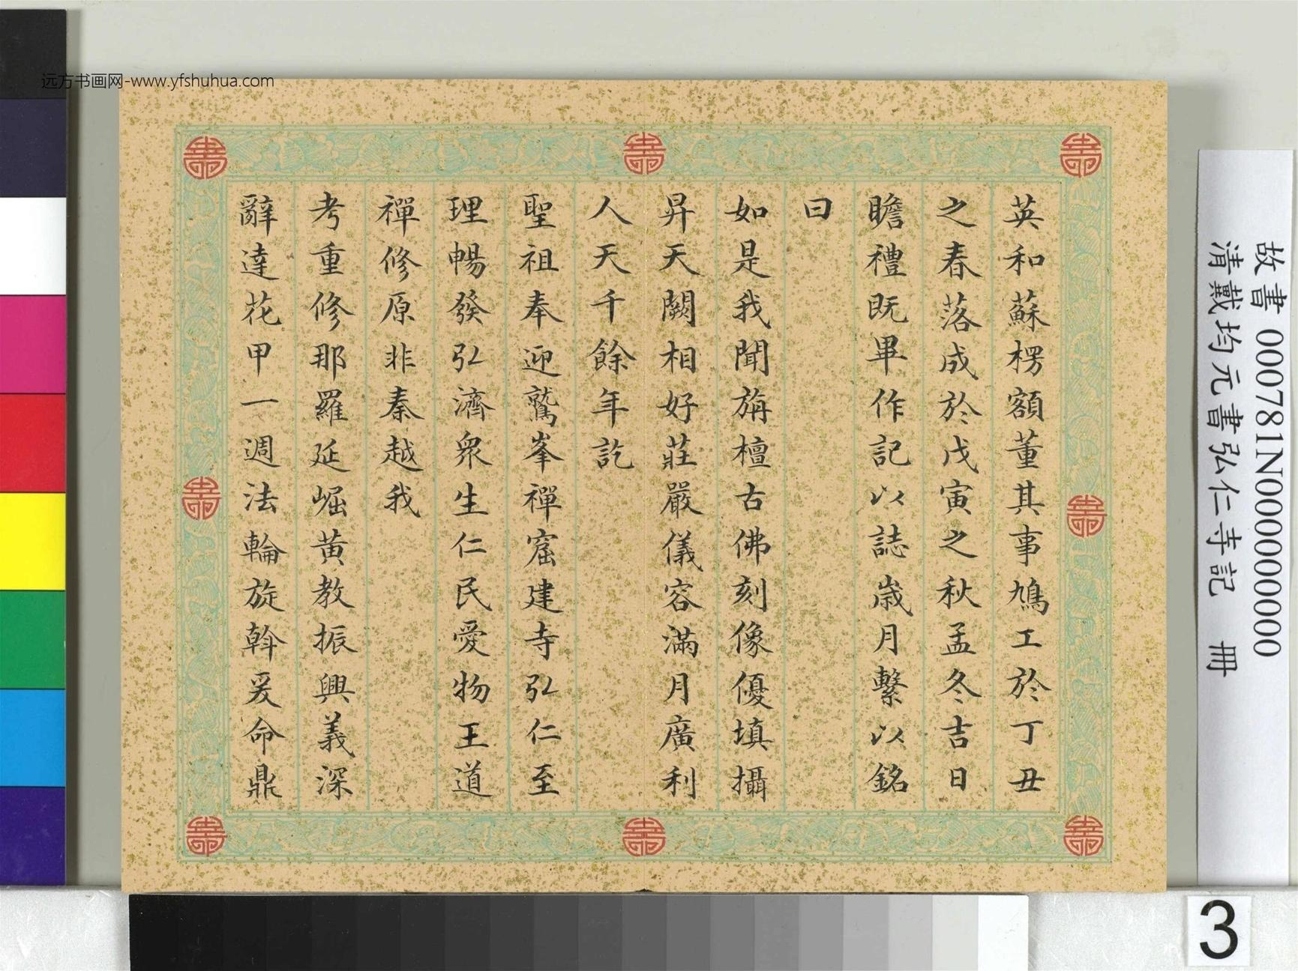 远方书画网-www.yfshuhua.com
英和蘇楞額董其事鳩工於丁丑
之春落成於戊寅之秋孟冬吉日
瞻禮既畢作記以誌歲月繫以銘
曰
如是我聞旃檀古佛刻像優填攝
昇天闕相好莊嚴儀容滿月廣利
人天千餘年訖
聖祖奉迎鷲峯禪窟建寺弘仁至
理暢發弘濟衆生仁民愛物王道
禪修原非秦越我
考重修那羅延崛黃教振興義深
辭達花甲一週法輪旋斡爰命鼎
故書 000781N000000000
清戴均元書弘仁寺記 冊
3